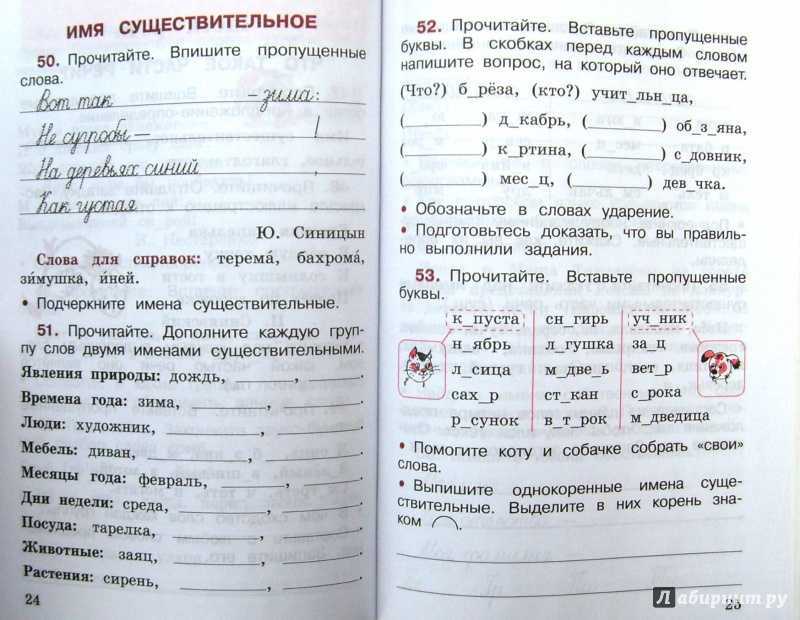 ИМЯ СУЩЕСТВИТЕЛЬНОЕ
50. Прочитайте. Впишите пропущенные
слова.
Вот так ____ - зима:
Не сугробы — ____!
На деревьях синий ____
Как густая ____
Ю. Синицын
Слова для справок: терема́, бахрома́,
зи́мушка, и́ней.
• Подчеркните имена существительные.
51. Прочитайте. Дополните каждую груп-
пу слов двумя именами существительными.
Явления природы: дождь, ____, ____.
Времена года: зима, ____, ____.
Люди: художник, ____, ____.
Мебель: диван, ____, ____.
Месяцы года: февраль, ____, ____.
Дни недели: среда, ____, ____.
Посуда: тарелка, ____, ____.
Животные: заяц, ____, ____.
Растения: сирень, ____, ____.
24
52. Прочитайте. Вставьте пропущенные
буквы. В скобках перед каждым словом
напишите вопрос, на который оно отвечает.
(Что?) б_рёза, (кто?) учит_льн_ца,
(____) д_кабрь, (____) об_з_яна,
(____) к_ртина, (____) с_довник,
(____) мес_ц, (____) дев_чка.
• Обозначьте в словах ударение.
• Подготовьтесь доказать, что вы правиль-
но выполнили задания.
53. Прочитайте. Вставьте пропущенные
буквы.
к_пуста сн_гирь уч_ник
н_ябрь л_гушка за_ц
л_сица м_две_ь вет_р
сах_р ст_кан с_рока
р_сунок в_т_рок м_дведица
• Помогите коту и собачке собрать «свои»
слова.
• Выпишите однокоренные имена суще-
ствительные. Выделите в них корень зна-
ком ⌒.
25
Лабиринт.ру